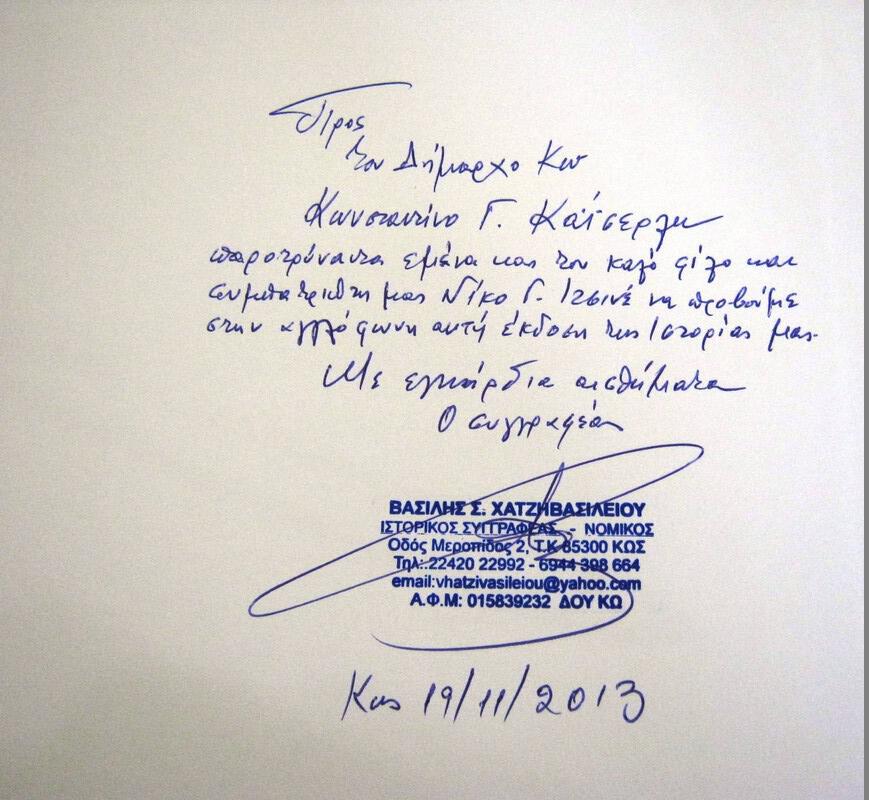 Προς
τον Δήμαρχο Κω
Κωνσταντίνο Γ. Καΐσερλη
παροτρύναντα εμένα και τον καλό φίλο και
συμπατριώτη μας Νίκο Γ. Ιτσινέ να προβούμε
στην αγγλόφωνη αυτή έκδοση της Ιστορίας μας.
Με εγκάρδια αισθήματα
Ο συγγραφέας
ΒΑΣΙΛΗΣ Σ. ΧΑΤΖΗΒΑΣΙΛΕΙΟΥ
ΙΣΤΟΡΙΚΟΣ ΣΥΓΓΡΑΦΕΑΣ - ΝΟΜΙΚΟΣ
Οδός Μεροπίδος 2, Τ.Κ 85300 ΚΩΣ
Τηλ.:22420 22992 - 6944 398 664
email:vhatzivasileiou@yahoo.com
Α.Φ.Μ: 015839232 ΔΟΥ ΚΩ
Κως 19/11/2013